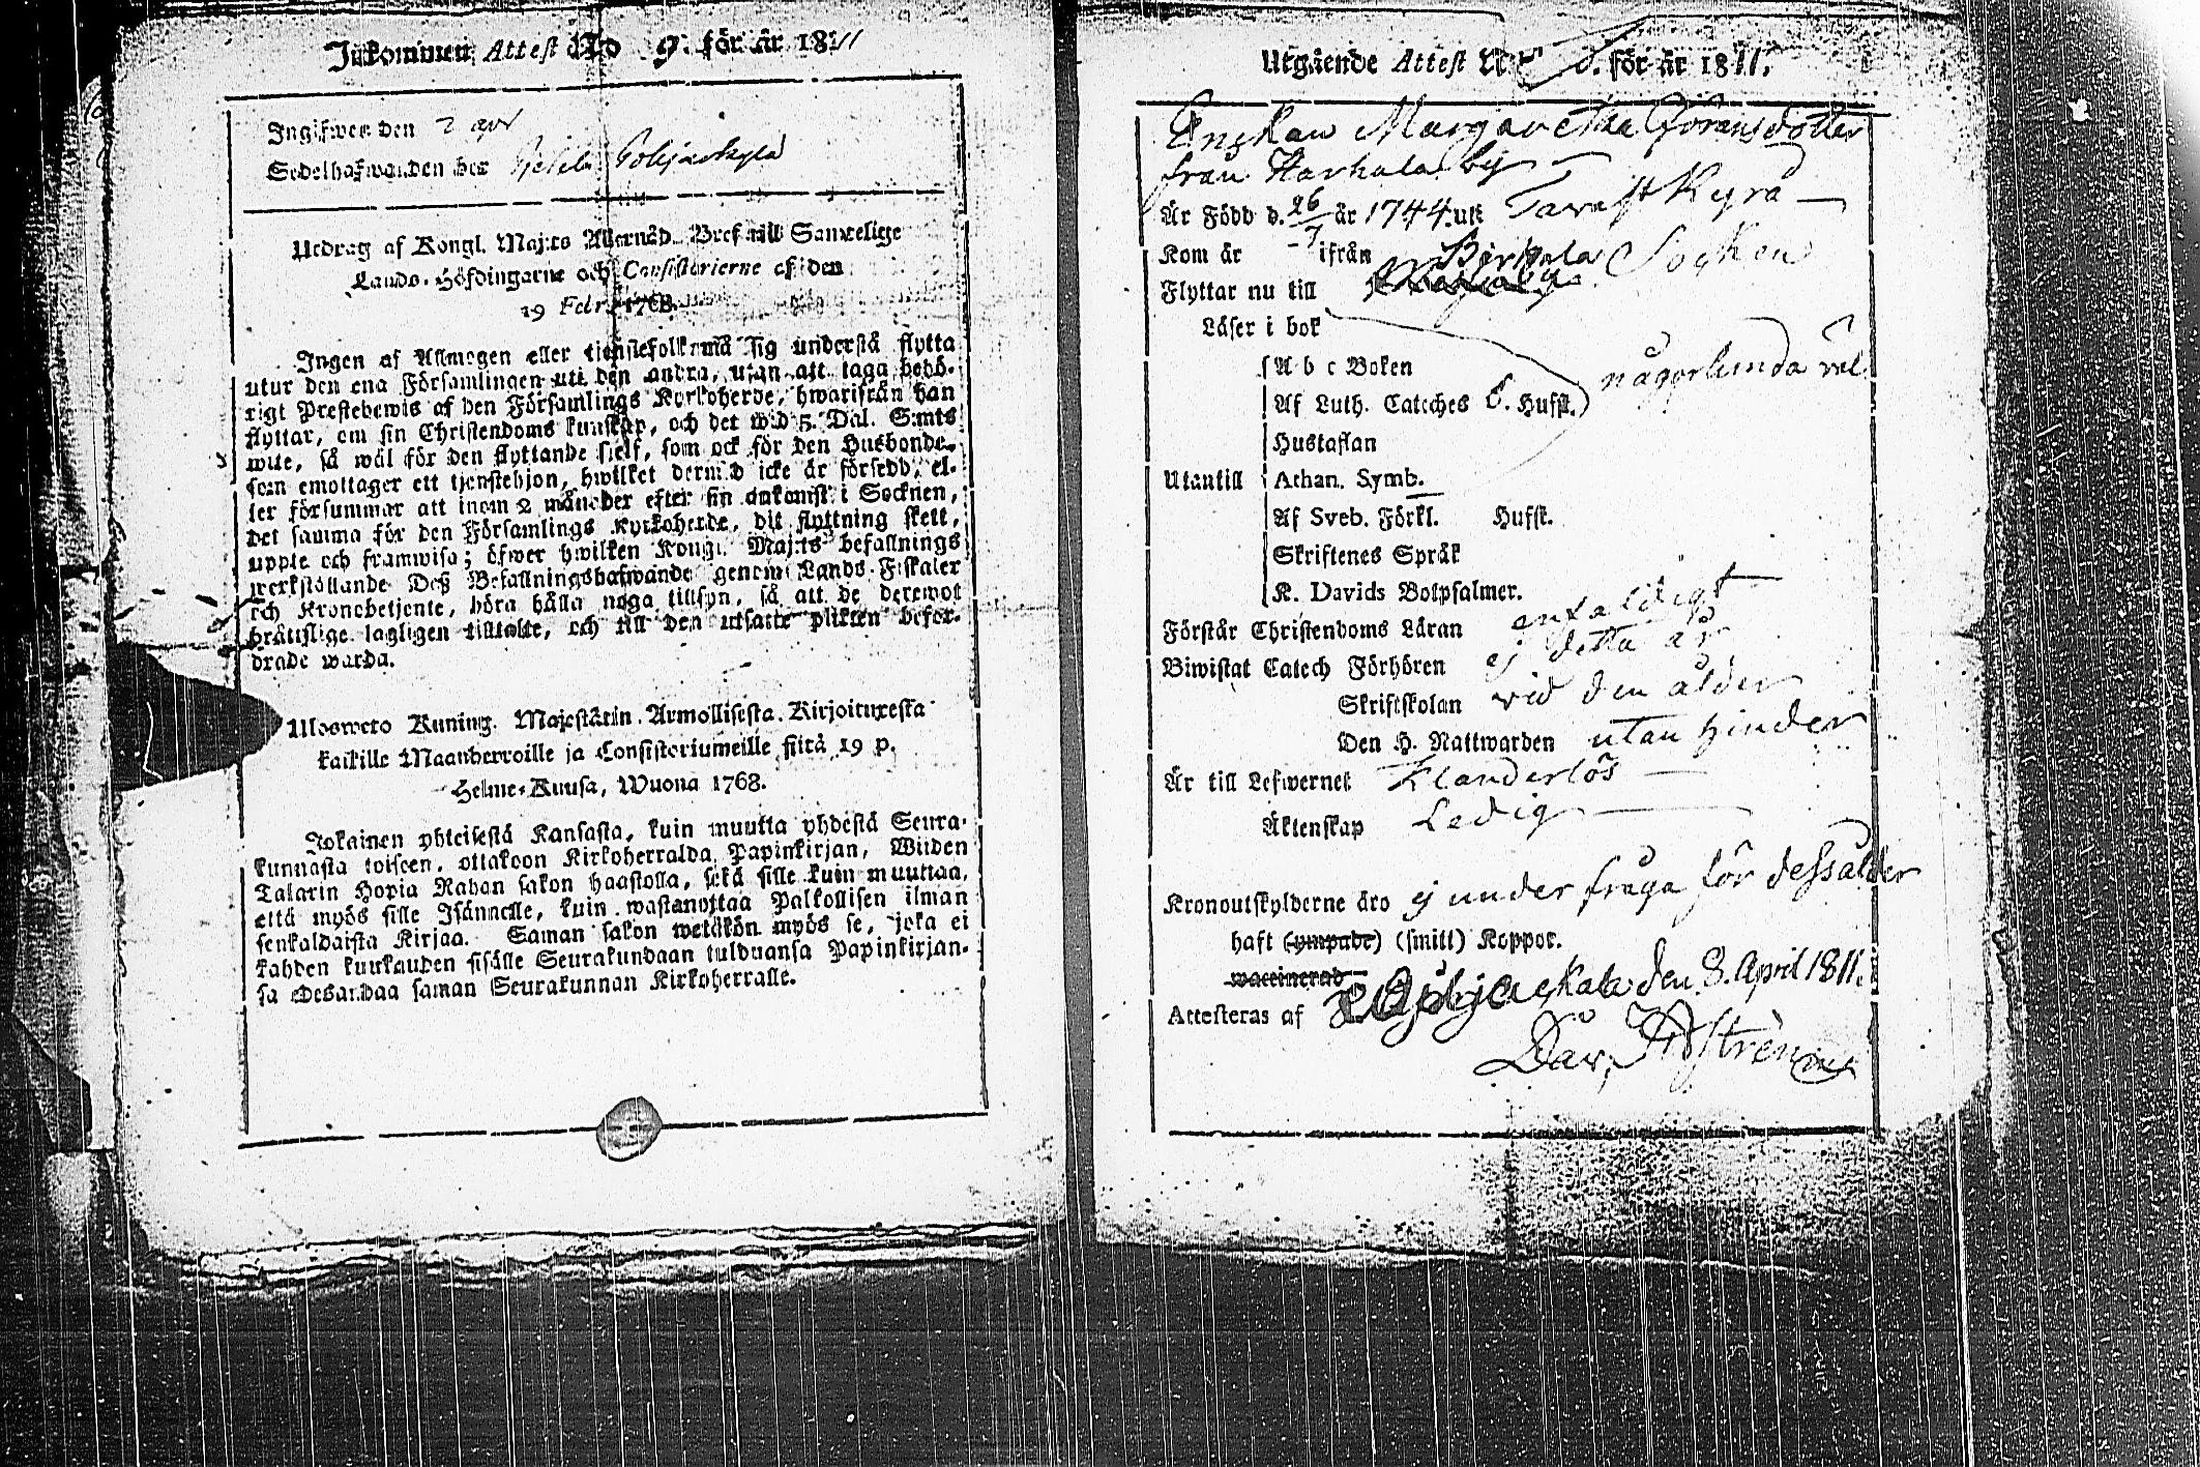 Inkommen Attest No 9. för år 1811
Ingifwen den 2 apr
Sedelhafwanden hos
Utdrag af Kongl. Maj:ts Allernåd. Bref till Samtelige
Lands-Höfdingarne och Consistorierne af den
19 Febr. 1768.
Ingen af Allmogen eller tienstefolk må sig understå flytta
utur den ena Församlingen uti den andra, utan att taga behö-
rigt Prestebewis af den Församlings Kyrkoherde, hwarifrån han
flyttar, om sin Christendoms kunskap, och det wid 5. Dal. S:mts
wite, så wäl för den flyttande sielf, som ock för den Husbonde,
som emottager ett tjenstehjon, hwilket dermed icke är försedd, el-
ler försummar att inom 2 månader efter sin ankomst i Socknen,
det samma för den Församlings Kyrkoherde, dit flyttning skett,
uppte och framwisa; öfwer hwilken Kongl. Maj:ts befallnings
werkställande Deß Befallningshafwande genom Lands-Fiskaler
och Kronobetjente, böra hålla noga tillsyn, så att de deremot
bråttslige lagligen tilltalte, och till den utsatte plikten befor-
drade warda.
Ulosweto Kuning. Majestätin Armollisesta Kirjoituxesta
kaikille Maanherroille ja Consistoriumeille siitä 19 p.
Helme-Kuusa, Wuona 1768.
Jokainen yhteisestä Kansasta, kuin muutta yhdestä Seura-
kunnasta toiseen, ottakoon Kirkoherralda Papinkirjan, Wiiden
Talarin Hopia Rahan sakon haastolla, sekä sille kuin muuttaa,
että myös sille Isännelle, kuin wastanottaa Palkollisen ilman
senkaldaista Kirjaa. Saman sakon wetäkön myös se, joka ei
kahden kuukauden sisälle Seurakundaan tulduansa Papinkirjan-
sa edesandaa saman Seurakunnan Kirkoherralle.
Utgående Attest för år 1811.
Enckan Margaretha Göransdotter
från Harhala by
Är Född d. 26/7 år 1744. uti Tavast Kyrå
Kom år ifrån Birkala Socken
Flyttar nu till
Läser i bok
A b c Boken någorlunda väl
Af Luth. Cateches Hufst.
Hustaflan
Utantill Athan. Symb.
Af Sveb. Förkl. Hufst.
Skriftenes Språk
K. Davids Botpsalmer.
Förstår Christendoms Läran enfaldigt
Biwistat Catech Förhören ej detta år
Skriftskolan vid den ålder
Den H. Nattwarden utan hinder
Är till Lefwernet Klanderlös
Äktenskap Ledig
Kronoutskylderne äro ej under fråga för dess ålder
haft (ympade) (smitt) Koppor.
waccinerad
Attesteras af den 8. April 1811.